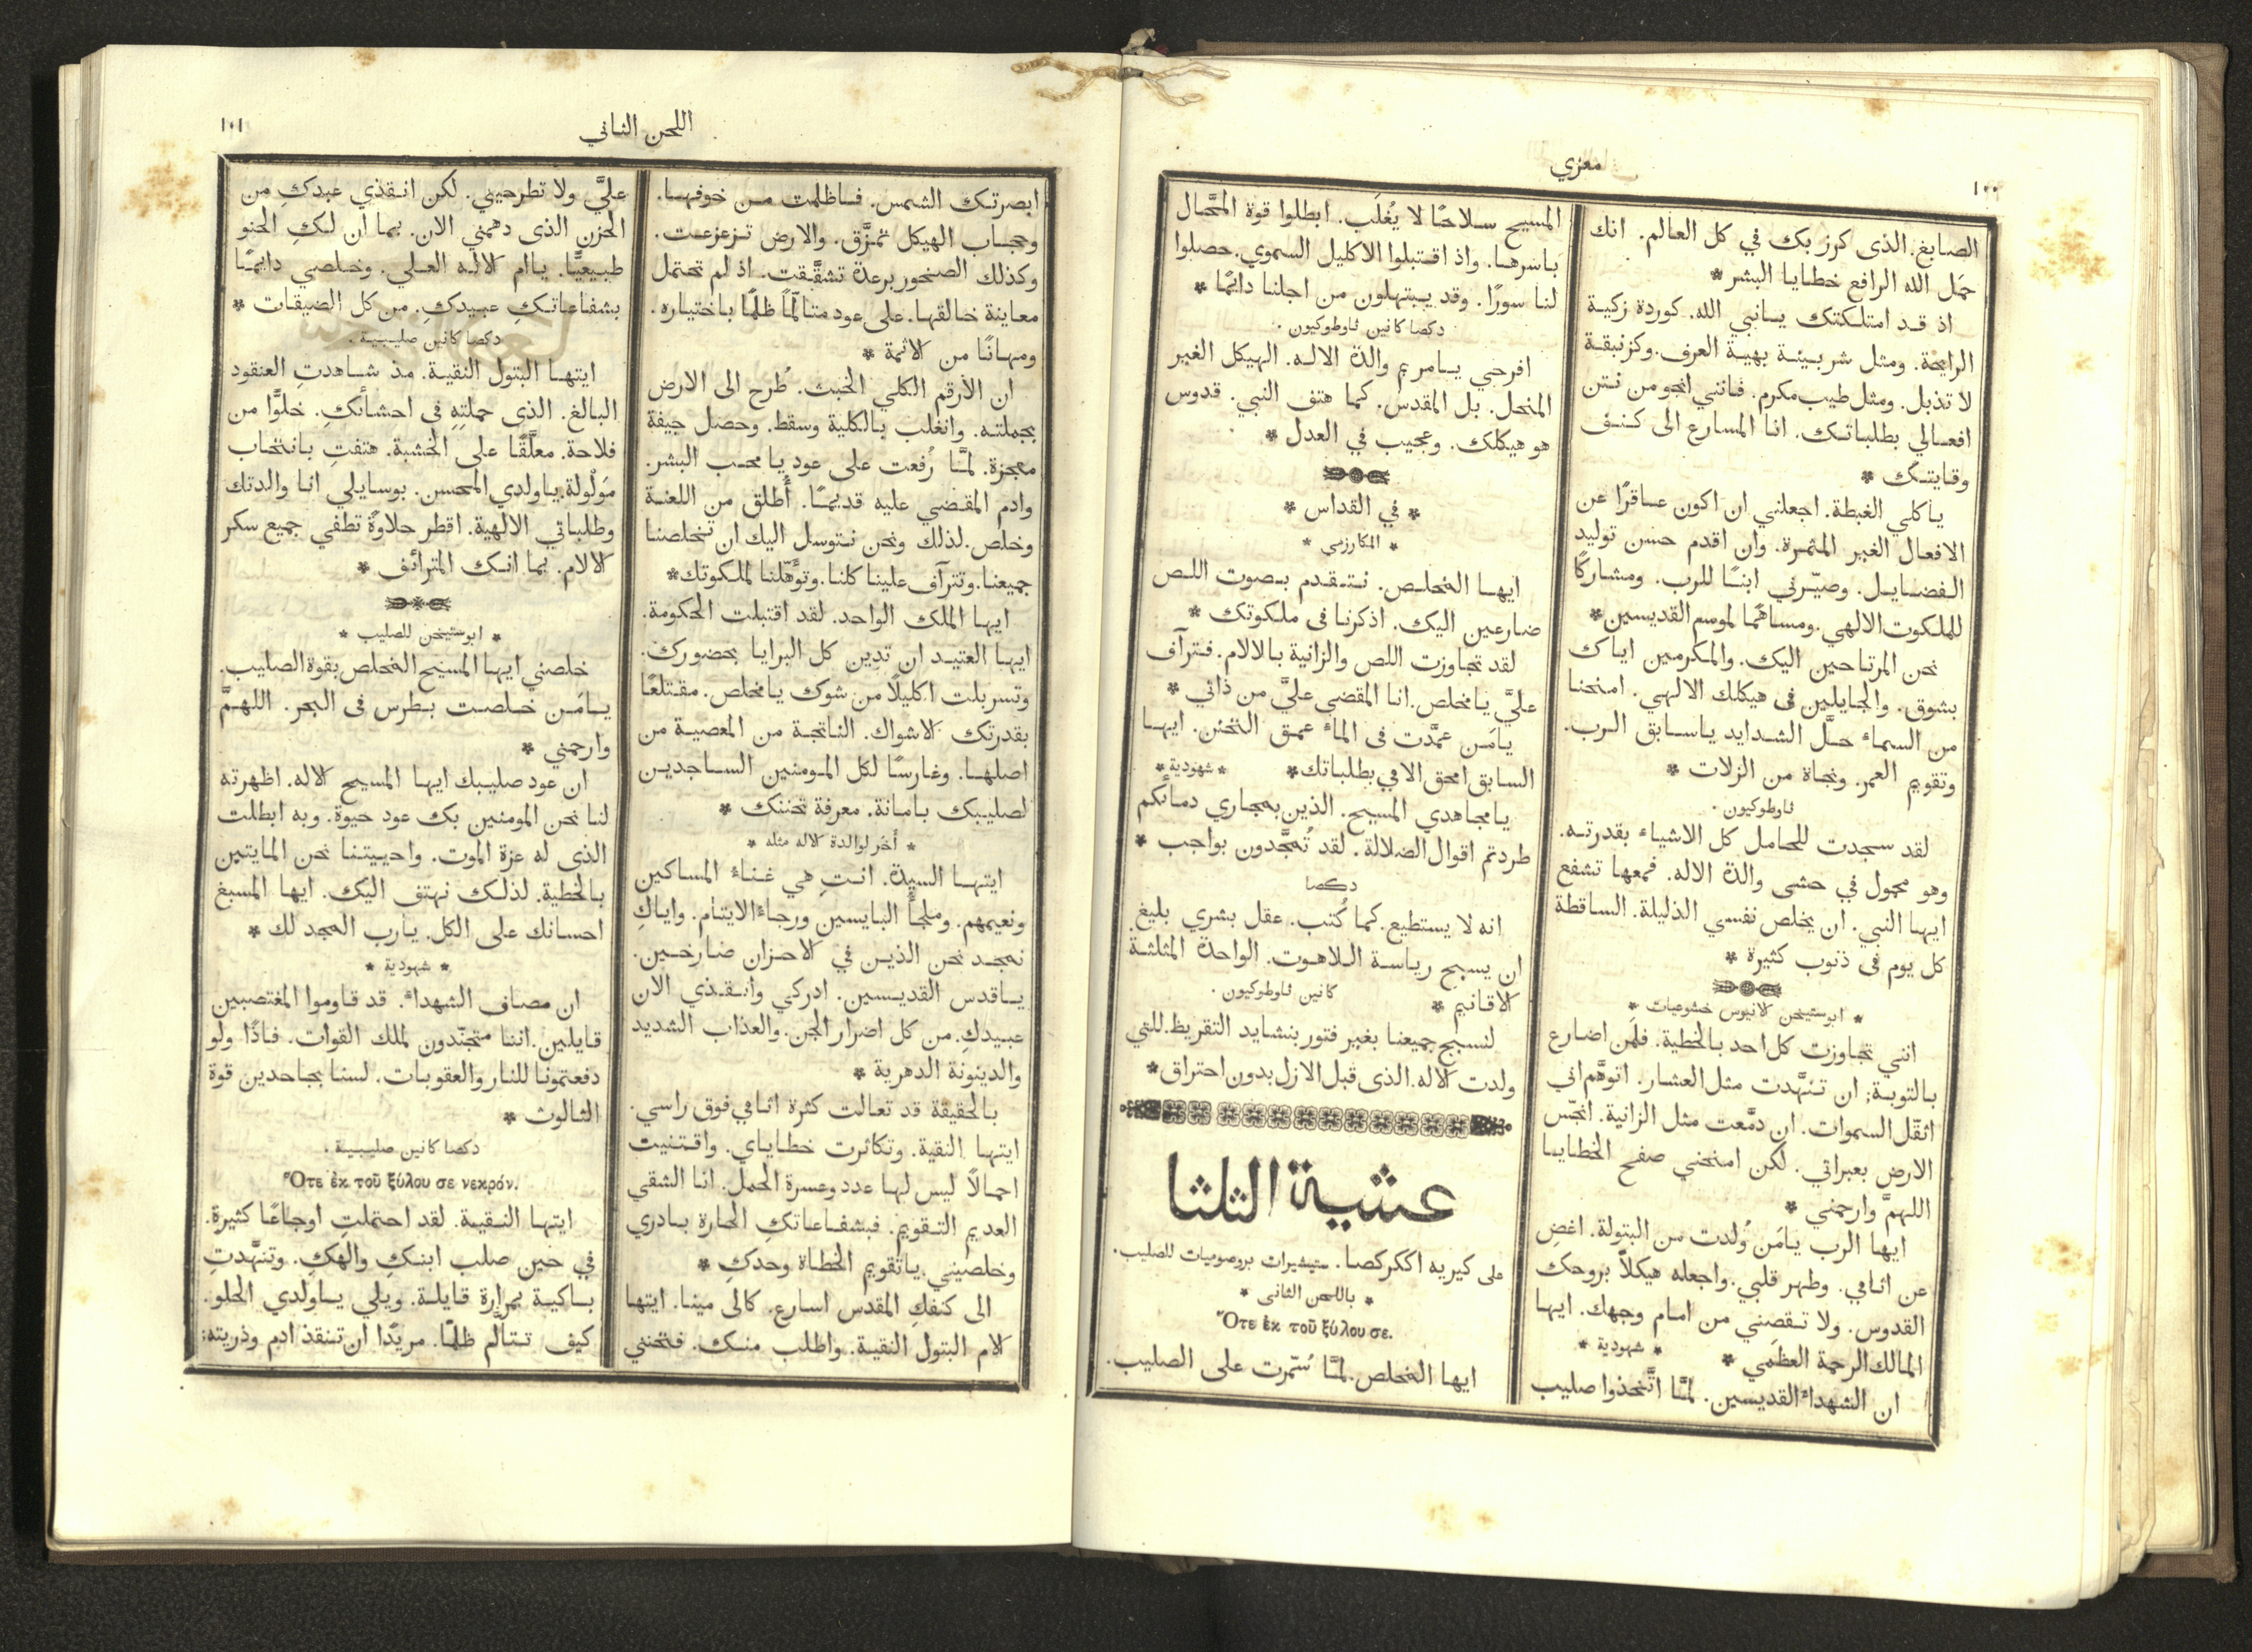 معزي
١٠٠
الصابغ. الذى كرز بك في كل العالم. انك
حَمَل الله الرافع خطايا البشر *
اذ قد امتلكتك يانبي الله. كوردة زكية
الرايحة. ومثل شربينة بهية العرف. وكزنبقة
لا تذبل. ومثل طيب مكرم. فانني انجو من نتن
افعالي بطلباتك. انا المسارع الى كنف
وقايتك *
ياكلي الغبطة. اجعلني ان اكون عاقرًا عن
الافعال الغير المثمرة. وان اقدم حسن توليد
الفضايل. وصيّرني ابنًا للرب. ومشاركًا
للملكوت الالهي. ومساهمًا لموسم القديسين *
نحن المرتاحين اليك. والمكرمين اياك
بشوق. والجايلين فى هيكلك الالهي. امنحنا
من السماء حلَّ الشدايد ياسابق الرب.
وتقويم العمر. ونجاة من الزلات *
ثاوطوكيون .
لقد سجدت للحامل كل الاشياء بقدرته.
وهو محمول في حشى والدة الاله. فمعها تشفع
ايها النبي. ان يخلص نفسي الذليلة. الساقطة
كل يوم فى ذنوب كثيرة *
* ابوستيخن لانيوس خشوعيات *
انني تجاوزت كل احد بالخطية. فلمن اضارع
بالتوبة; ان تنهَّدت مثل العشار. اتوهَّم اني
اثقّل السموات. ان دمَّعت مثل الزانية. انجّس
الارض بعبراتي. لكن امنحني صفح الخطايا
اللهمَّ وارحمني *
ايها الرب يامَن وُلدت من البتولة. اغضِ
عن اثامي. وطهر قلبي. واجعله هيكلاً بروحك
القدوس. ولا تقصِني من امام وجهك. ايها
المالك الرحمة العظمي * * شهودية *
ان الشهداء القديسين. لمَّا اتَّخذوا صليب
المسيح سلاحًا لا يُغلَب. ابطلوا قوة المحَّال
باسرها. واذ اقتبلوا الاكليل السموي. حصلوا
لنا سورًا. وقد يبتهلون من اجلنا دايمًا *
دكصا كانين ثاوطوكيون .
افرحي يامريم والدة الاله. الهيكل الغير
المنحل. بل المقدس. كما هتف النبي. قدوس
هو هيكلك. وعجيب في العدل *
* في القداس *
* المكارزمي *
ايها المخلص. نتقدم بصوت اللص
ضارعين اليك. اذكرنا فى ملكوتك *
لقد تجاوزت اللص والزانية بالالام. فترآف
عليَّ يامخلص. انا المقضي عليَّ من ذاتي *
يامَن عمَّدت فى الماء عمق التحنن. ايها
السابق امحق الامي بطلباتك * * شهودية *
يامجاهدي المسيح. الذين بمجاري دمائكم
طردتم اقوال الضلالة. لقد تُمجَّدون بواجب *
دكصا
انه لا يستطيع. كما كُتب. عقل بشري بليغ.
ان يسبح رياسة اللاهوت. الواحدة المثلثة
الاقانيم * كانين ثاوطوكيون .
لنسبح جميعنا بغير فتور بنشايد التقريظ. للتي
ولدت الاله. الذى قبل الازل بدون احتراق *
عشية الثلثا
على كيريه اككركصا. ستيشيرات بروصوميات للصليب.
* باللحن الثانى *
Ὅτε ἐκ τοῦ ξύλου σε.
ايها المخلص. لمَّا سُمّرت على الصليب.
اللحن الثاني
١٠١
ابصرتك الشمس. فاظلمت من خوفها.
وحجاب الهيكل تمزَّق. والارض تزعزعت.
وكذلك الصخور برعدة تشقَّقت. اذ لم تحتمل
معاينة خالقها. على عود متالّمًا ظلمًا باختياره.
ومهانًا من الاثمة *
ان الأرقم الكلي الخبث. طُرح الى الارض
بجملته. وانغلب بالكلية وسقط. وحصل جيفة
معجزة. لمَّا رُفعت على عود يا محب البشر.
وادم المقضي عليه قديمًا. أُطلق من اللعنة
وخلص. لذلك ونحن نتوسل اليك ان تخلصنا
جميعنا. وتترآف علينا كلنا. وتؤهّلنا لملكوتك *
ايها الملك الواحد. لقد اقتبلت الحكومة.
ايها العتيد ان تدين كل البرايا بحضورك.
وتسربلت اكليلًا من شوك يا مخلص. مقتلعًا
بقدرتك الاشواك. الناتجة من المعصية من
اصلها. وغارسًا لكل المومنين الساجدين
لصليبك بامانة. معرفة تحننك *
* أُخر لوالدة الاله مثله *
ايتها السيدة. انتِ هي غناء المساكين
ونعيمهم. وملجأُ البايسين ورجاء الايتام. واياكِ
نمجد نحن الذين في الاحزان صارخين.
ياقدس القديسين. ادركي وانقذي الان
عبيدكِ. من كل اضرار الجن. والعذاب الشديد
والدينونة الدهرية *
بالحقيقة قد تعالت كثرة اثامي فوق راسي.
ايتها النقية. وتكاثرت خطاياي. واقتنيت
احمالًا ليس لها عدد وعسرة الحمل. انا الشقي
العديم التقويم. فبشفاعاتكِ الحارة بادري
وخلصيني. ياتقويم الخطاة وحدكِ *
الى كنفكِ المقدس اسارع. كالى مينا. ايتها
الام البتول النقية. واطلب منك. فتحنني
عليَّ ولا تطرحيني. لكن انقذي عبدكِ من
الحزن الذى دهمني الان. بما ان لكِ الحنو
طبيعيًّا. ياام الاله العلي. وخلصي دايمًا
بشفاعاتكِ عبيدكِ. من كل الضيقات *
دكصا كانين صليبية .
ايتها البتول النقية. مذ شاهدتِ العنقود
البالغ. الذى حملتِهِ فى احشائكِ. خلوًّا من
فلاحة. معلَّقًا على الخشبة. هتفتِ بانتحاب
مَولْولة. ياولدي المحسن. بوسايلي انا والدتك
وطلباتي الالهية. اقطر حلاوةً تطفي جميع سكر
الالام. بما انك المترائف *
* ابوستيخن للصليب *
خلصني ايها المسيح المخلص بقوة الصليب.
يامَن خلصت بطرس فى البحر. اللهمَّ
وارحمني *
ان عود صليبك ايها المسيح الاله. اظهرته
لنا نحن المومنين بك عود حيوة. وبه ابطلت
الذى له عزة الموت. واحييتنا نحن المايتين
بالخطية. لذلك نهتف اليك. ايها المسبغ
احسانك على الكل. يارب المجد لك *
* شهودية *
ان مصاف الشهداء. قد قاوموا المغتصبين
قايلين. اننا متجنّدون لملك القوات. فاذًا ولو
دفعتمونا للنار والعقوبات. لسنا بجاحدين قوة
الثالوث *
دكصا كانين صليبية .
Ὅτε ἐκ τοῦ ξύλου σε νεκρόν.
ايتها النقية. لقد احتملتِ اوجاعًا كثيرة.
في حين صلب ابنكِ والهكِ. وتنهَّدتِ
باكية بمرارة قايلة. ويلي ياولدي الحلو.
كيف تتالّم ظلمًا. مريدًا ان تنقذ ادم وذريته;